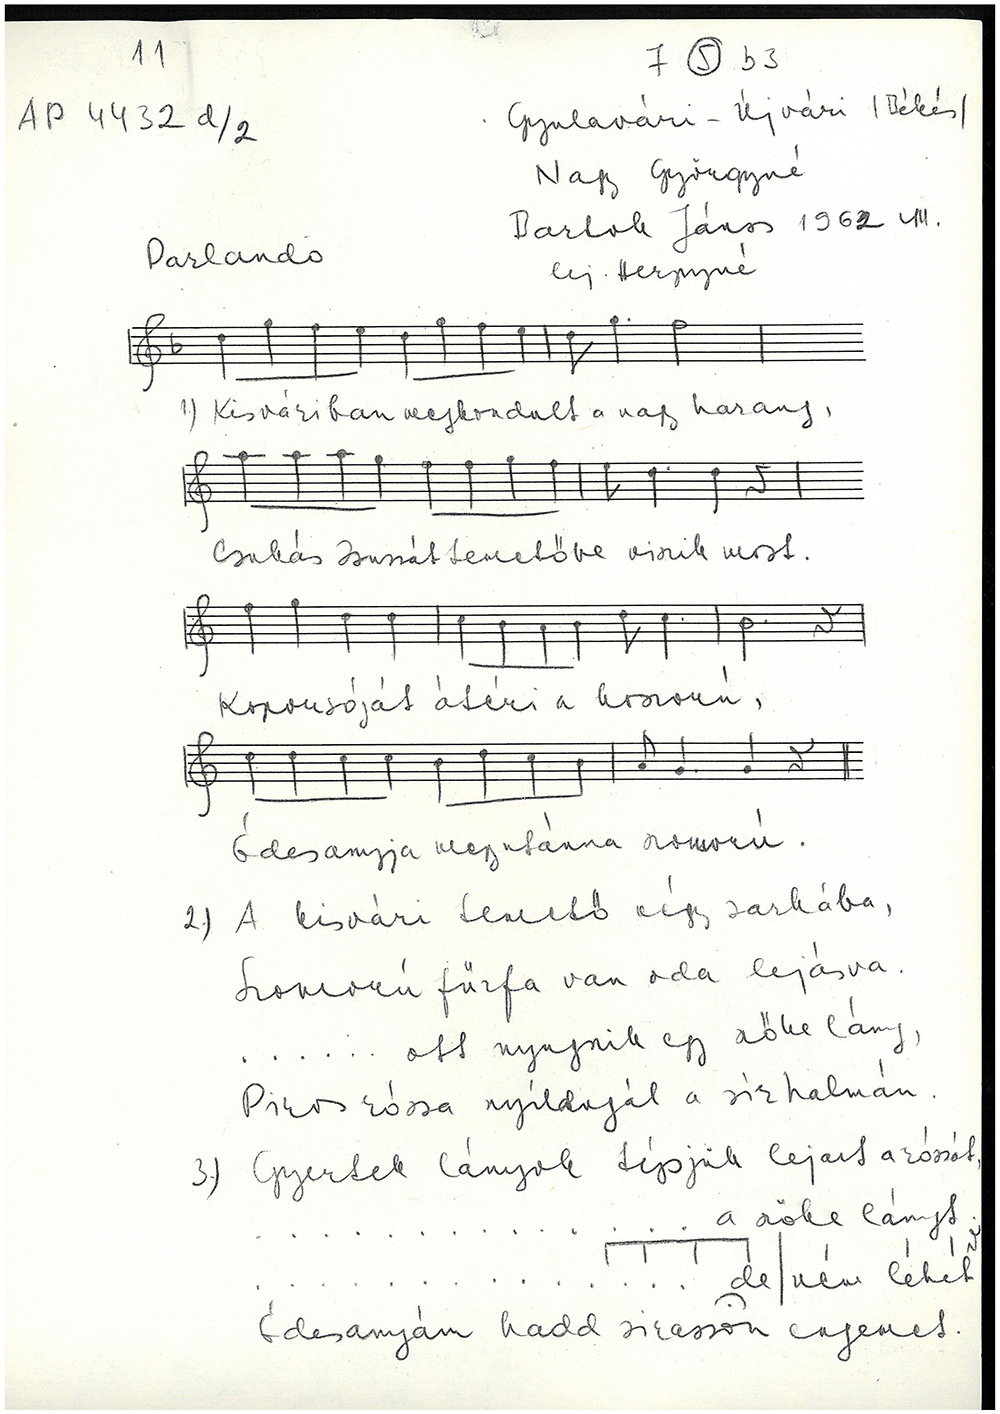 11
7 5 b3
AP 4432 d/2
Gyulavári - Újvári /Békés/
Nagy Györgyné
Bartok János 1962 VII.
lej. Herpyné
Parlando
1) Kisváriban megkondult a nagy harang,
Csukás Zsuzsát temetőbe viszik most.
Koporsóját átéri a koszorú,
Édesanyja megutánna szomorú.
2.) A kisvári temető négy sarkába,
Szomorú fűzfa van oda leásva.
. . . . . . ott nyugszik egy szőke lány,
Piros rózsa nyíldogál a sírhalmán.
3.) Gyertek lányok tépjük le azt a rózsát,
. . . . . . . . . . . . . . a szőke lányt.
. . . . . . . . . . . . . . de nem lehet
Édesanyám hadd sirasson engemet.